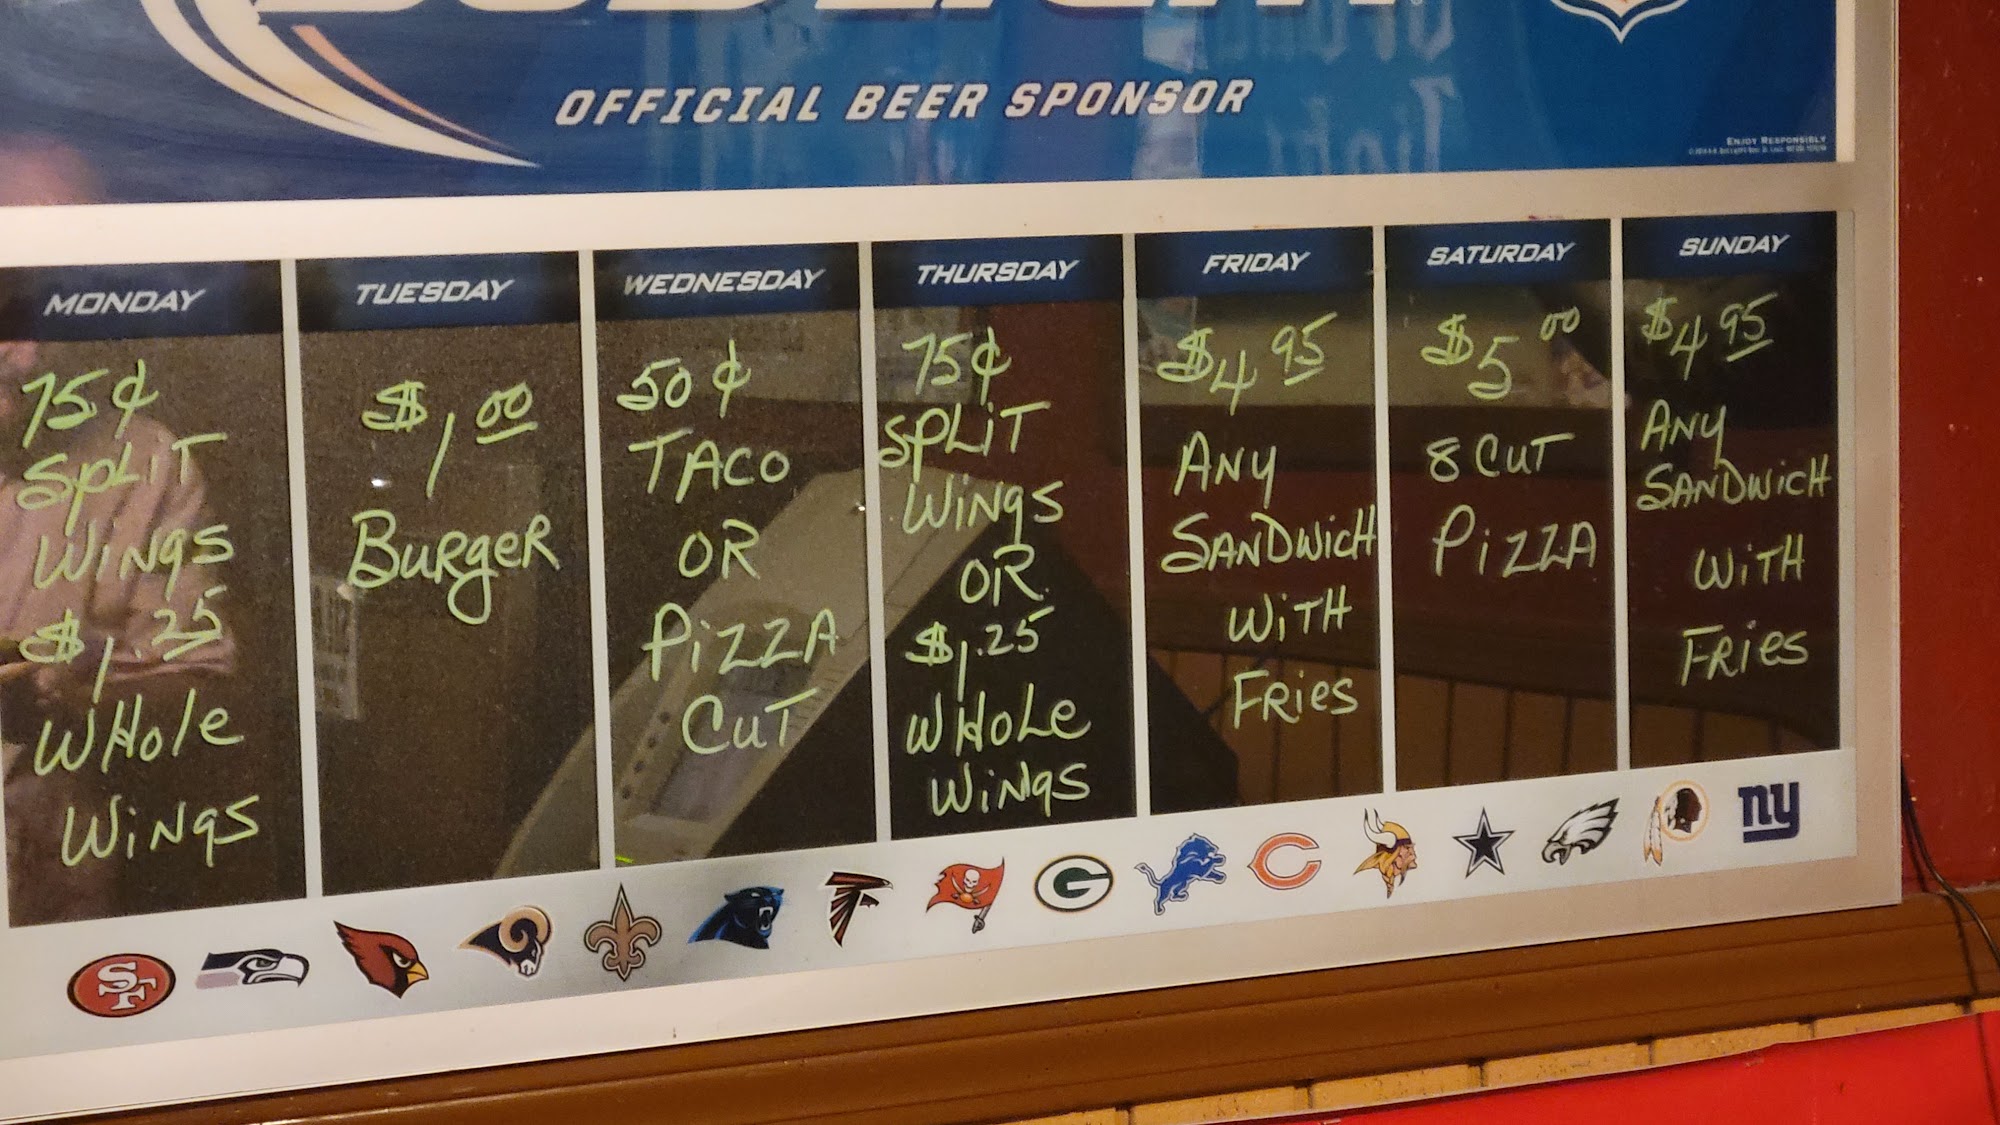 BUD LIGHT
OFFICIAL BEER SPONSOR
ENJOY RESPONSIBLY
MONDAY
75¢
SPLIT
WINgS
$1.25
WHole
WINgS
TUESDAY
$1.00
BURgeR
WEDNESDAY
50¢
TACO
OR
PIZZA
CUT
THURSDAY
75¢
SPLIT
WINgS
OR
$1.25
WHOLe
WINgS
FRIDAY
$4.95
ANY
SANDWicH
WITH
FRies
SATURDAY
$5.00
8 CUT
PIZZA
SUNDAY
$4.95
ANY
SANDWicH
WITH
FRies
SF
G
C
ny